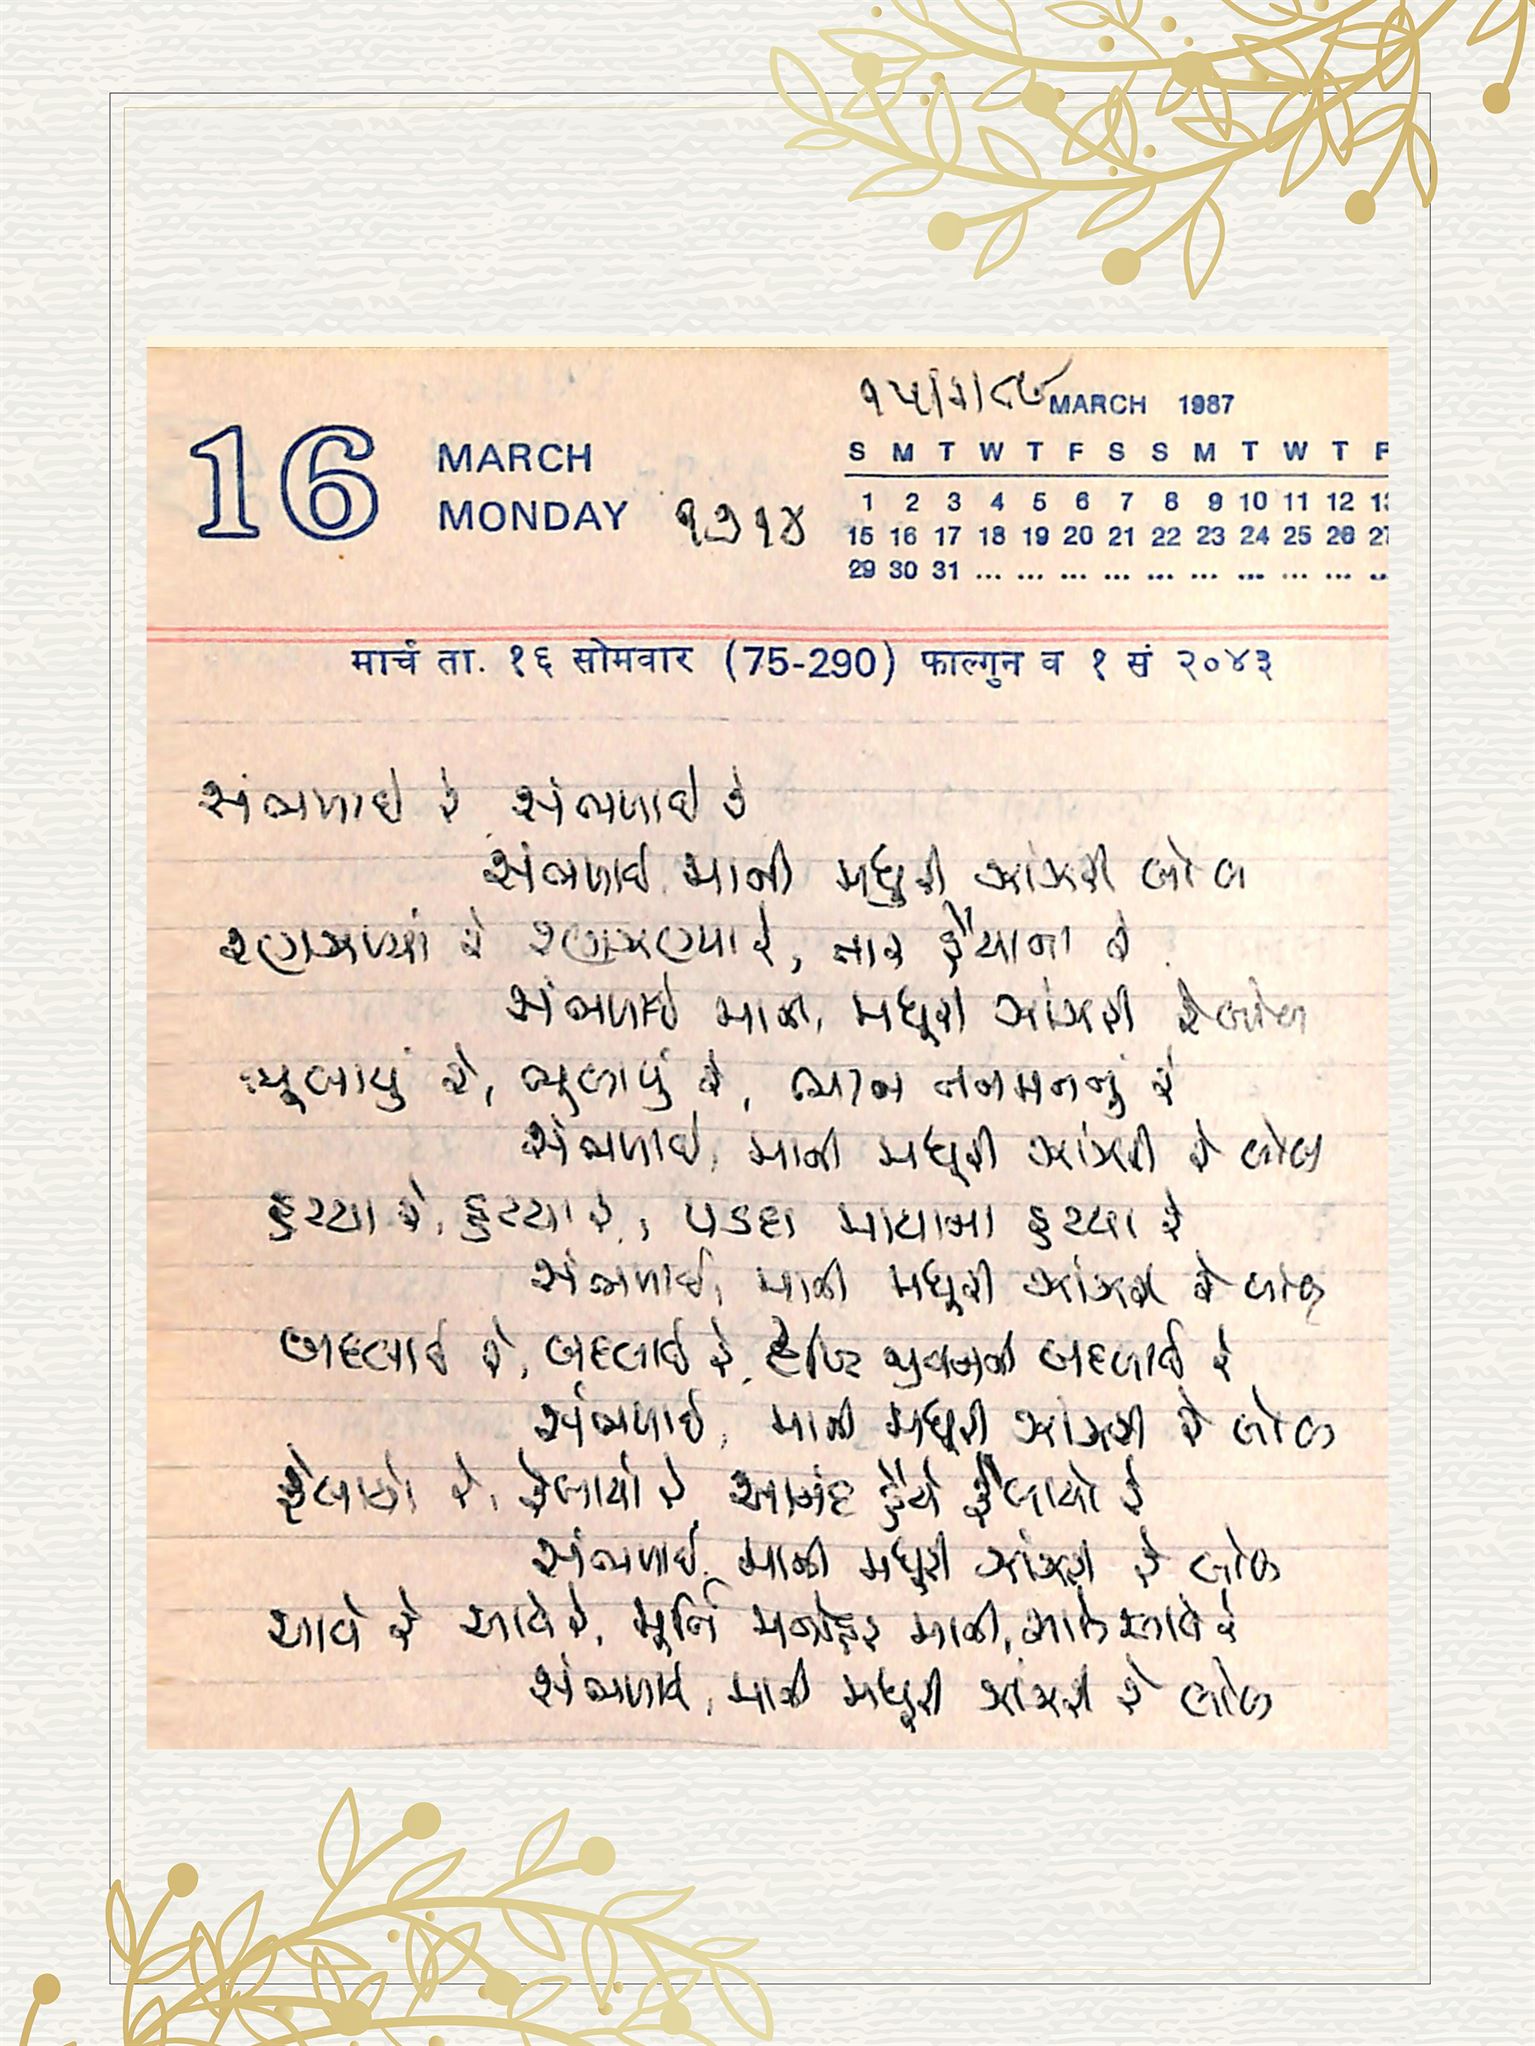 ૧૫/૩/૮૭
MARCH 1987
16 MARCH
MONDAY ૧૭૧૪
S M T W T F S S M T W T F
1 2 3 4 5 6 7 8 9 10 11 12 13
15 16 17 18 19 20 21 22 23 24 25 26 27
29 30 31 ... ... ... ... ... ... ... ... ... ...
मार्च ता. १६ सोमवार (75-290) फाल्गुन व १ सं २०४३
સંભળાઈ રે સંભળાઈ રે
સંભળાઈ માની મધુરી ઝાંઝરી લોલ
રણઝણ્યાં રે રણઝણ્યા રે, તાર હૈયાના રે
સંભળાઈ માની, મધુરી ઝાંઝરી રે લોલ
ભૂલાયું રે, ભુલાયું રે, ભાન તનમનનું રે
સંભળાઈ, માની મધુરી ઝાંઝરી રે લોલ
હટયા રે, હટયા રે, પડદા માયાના હટયા રે
સંભળાઈ, માની મધુરી ઝાંઝરી રે લોલ
બદલાઈ રે, બદલાઈ રે, દૃષ્ટિ બદલાઈ રે
સંભળાઈ, માની મધુરી ઝાંઝરી રે લોલ
ફેલાયો રે, ફેલાયો રે આનંદ હૈયે ફેલાયો રે
સંભળાઈ, માની મધુરી ઝાંઝરી રે લોલ
આવે રે આવે રે, મૂર્તિ મનોહર માની, આવે રે
સંભળાઈ, માની મધુરી ઝાંઝરી રે લોલ